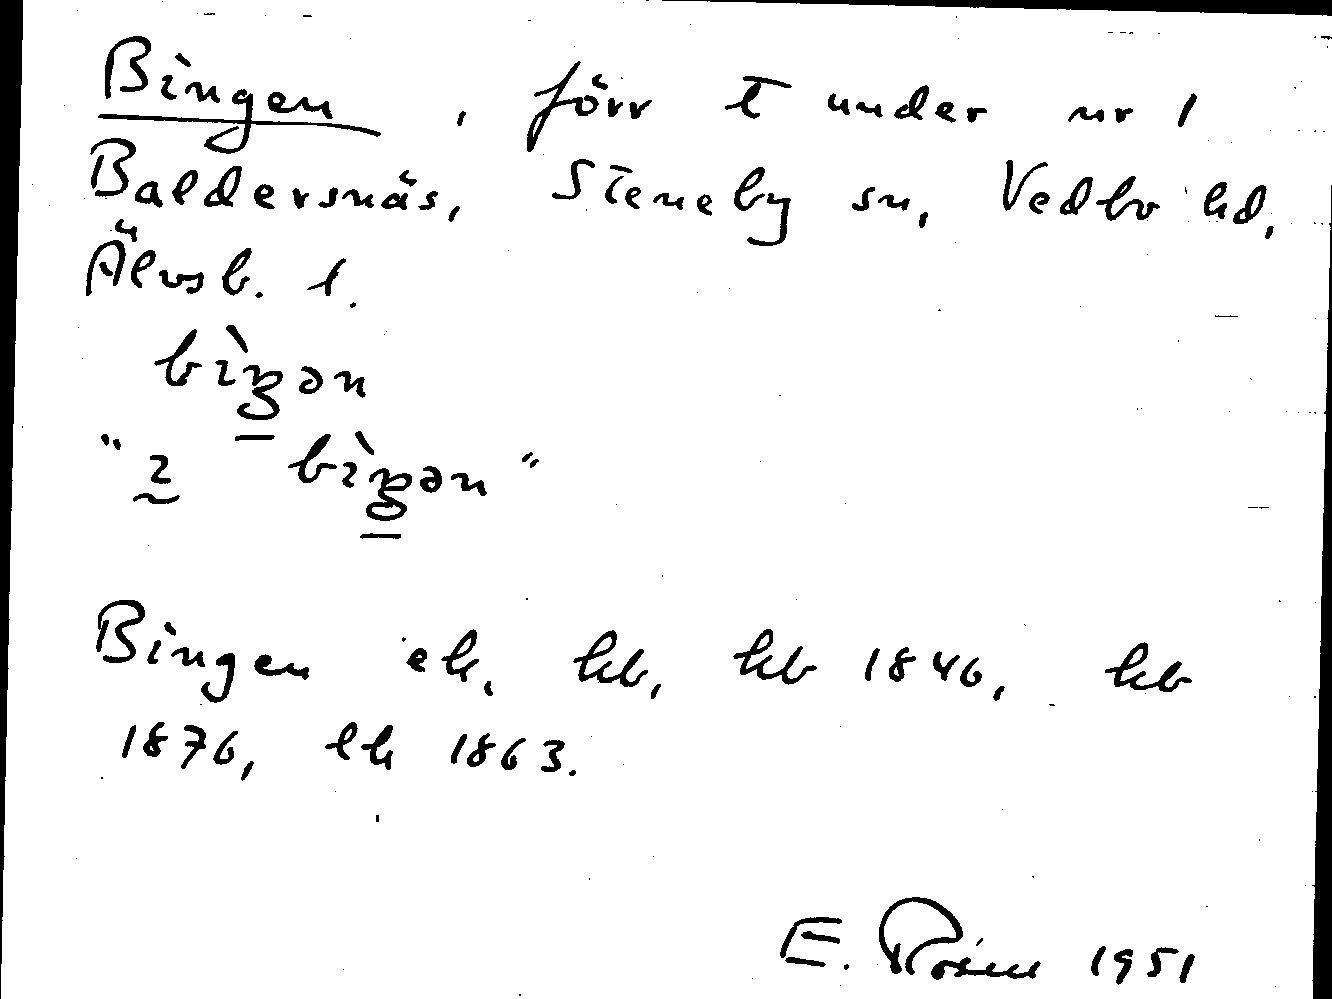 Bingen, förr t under nr 1
Baldersnäs, Steneby sn, Vedbo hd,
Älvsb. l.
bìŋən
"ı bìŋən"
Bingen ek, kb, kb 1846, kb
1876, lk 1863.
E. Rosén 1951